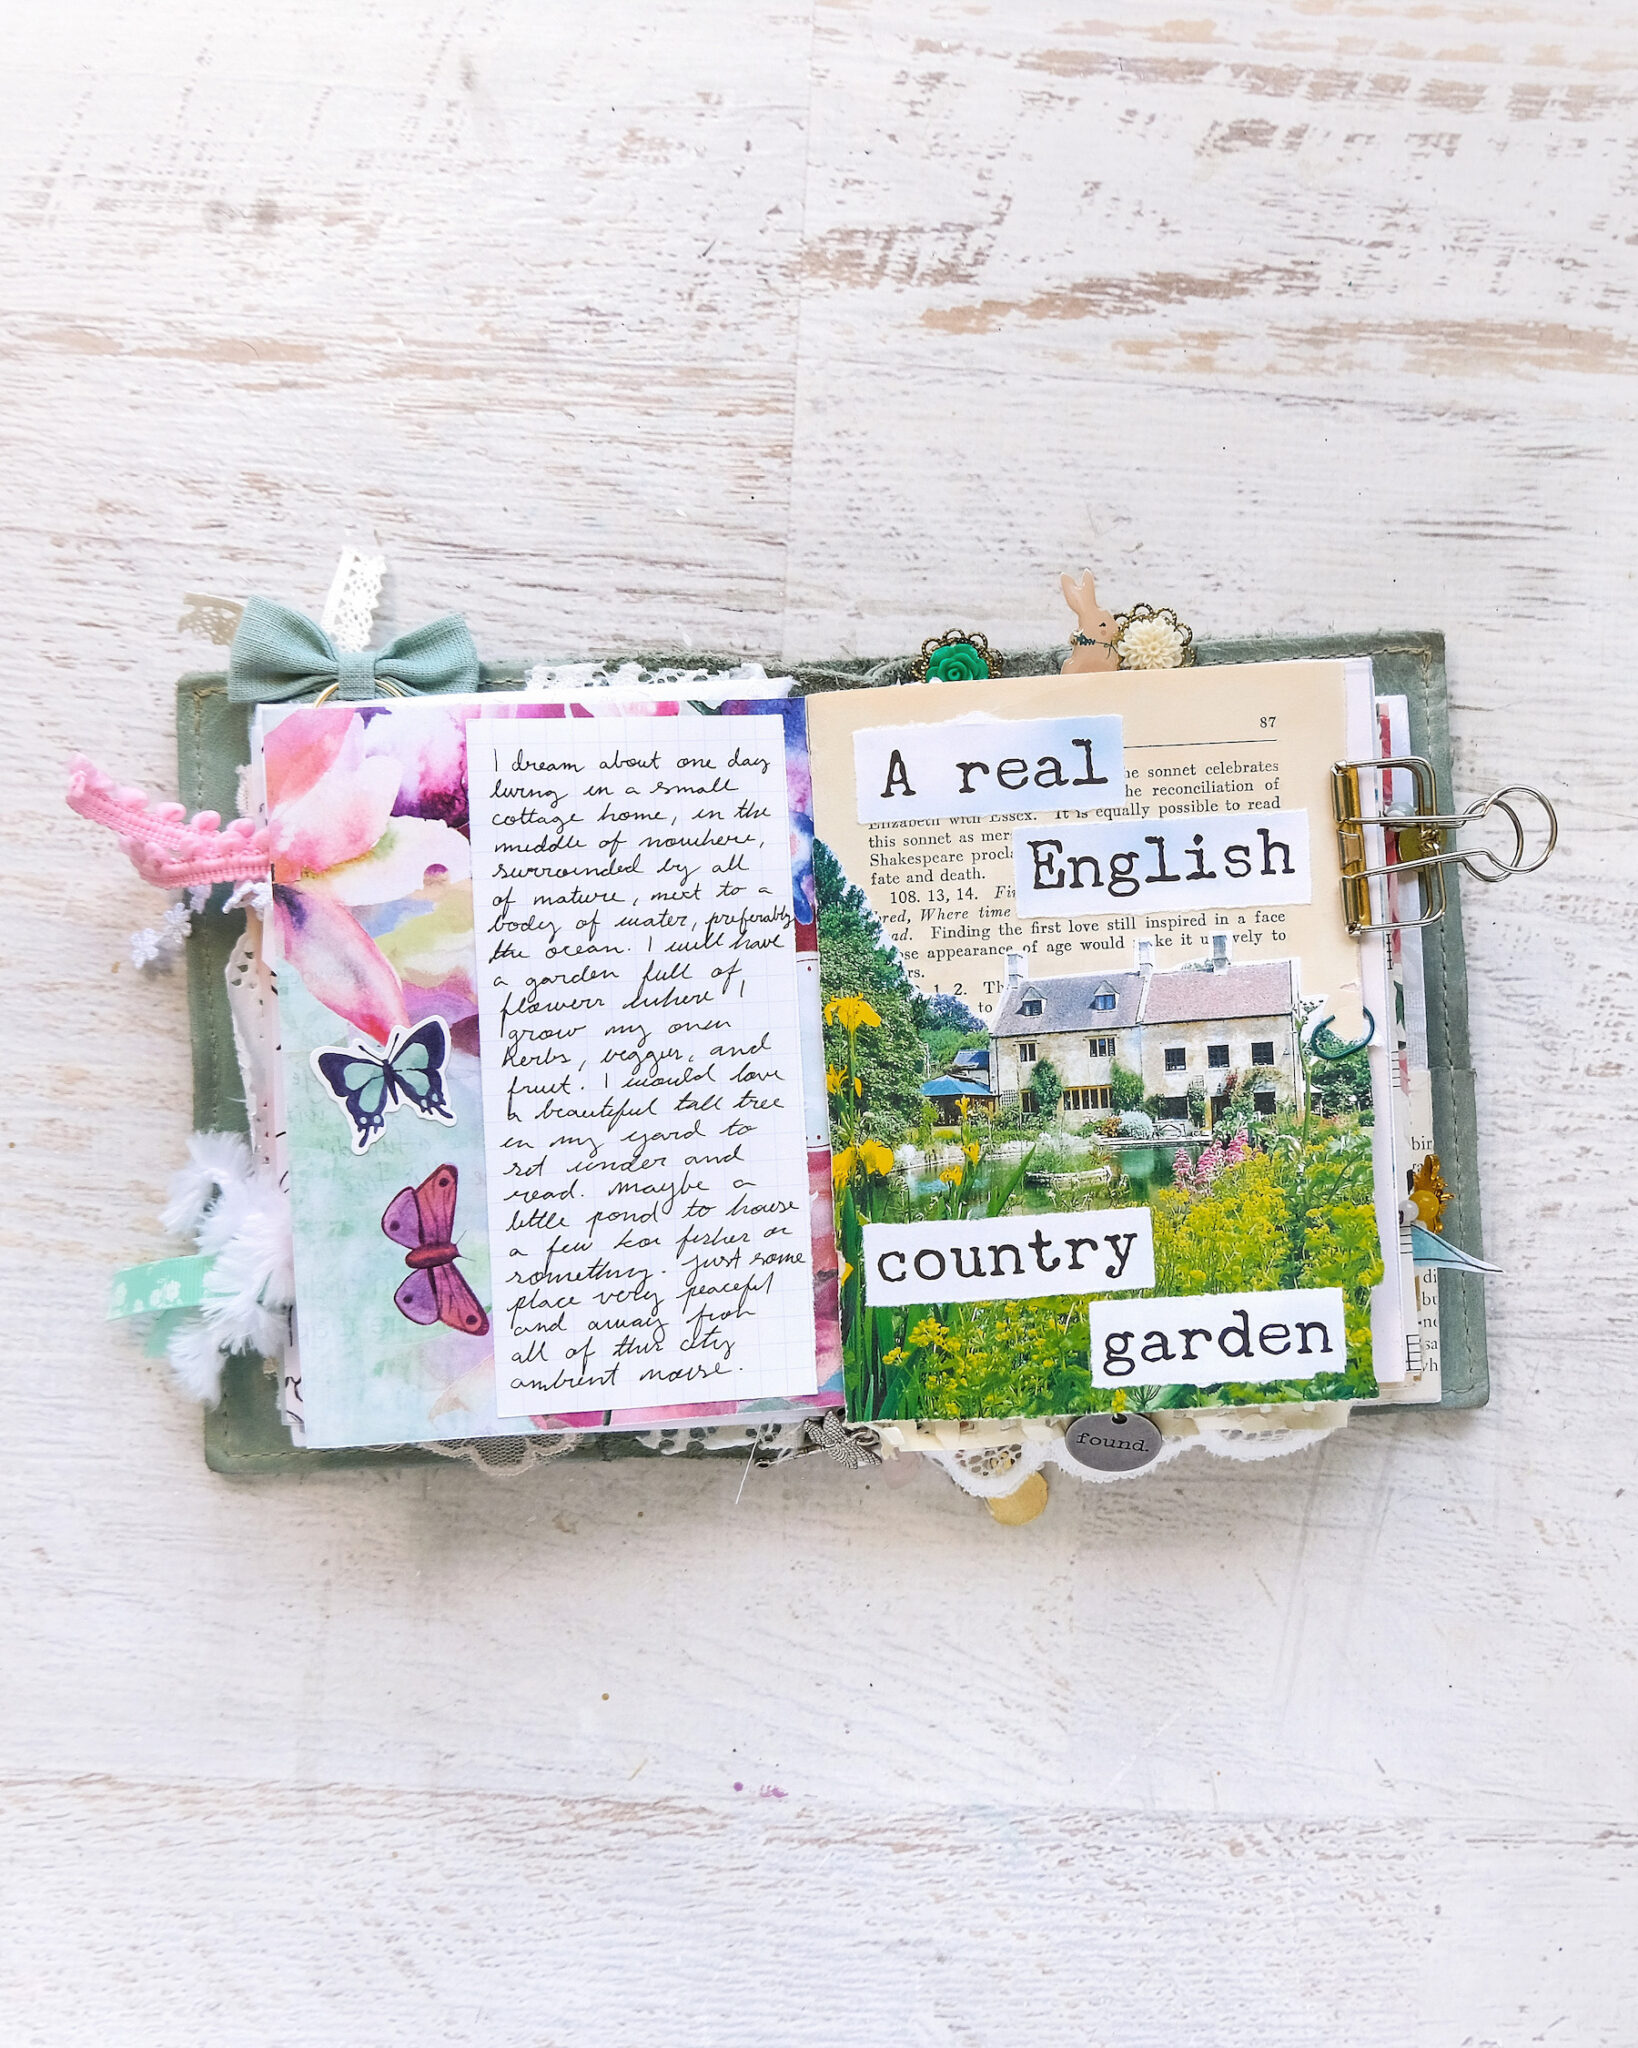 I dream about one day
living in a small
cottage home, in the
middle of nowhere,
surrounded by all
of nature, next to a
body of water, preferably
the ocean. I will have
a garden full of
flowers where I
grow my own
herbs, veggies, and
fruit. I would love
a beautiful tall tree
in my yard to
sit under and
read. Maybe a
little pond to house
a few koi fishes or
something. Just some
place very peaceful
and away from
all of this city
ambient noise.
87
A real
he sonnet celebrates
he reconciliation of
Elizabeth with Essex. It is equally possible to read
this sonnet as mer
English
Shakespeare procla
fate and death.
108. 13, 14. Fi
red, Where time
ad. Finding the first love still inspired in a face
se appearance of age would
to
rs.
1, 2. Th
to
country
garden
found.
bir
di
bu
sa
wh